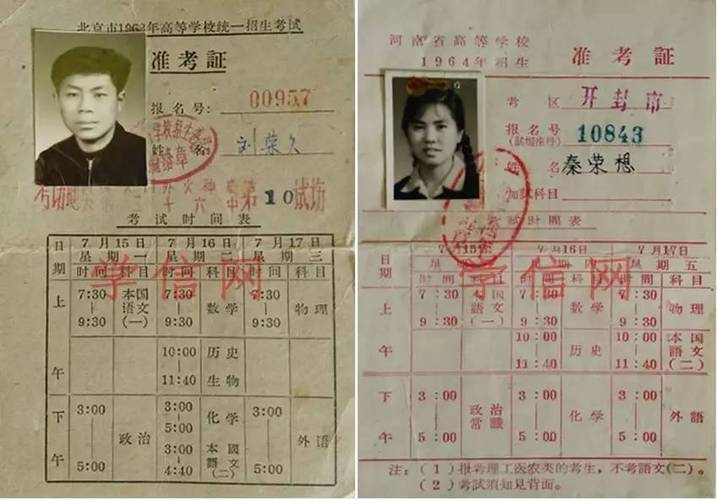 北京市1963年高等学校统一招生考试
准考証
报名号:
00957
姓名
刘荣久
第10試坊
考試时間表
日期
7月15日 星期一
7月16日 星期二
7月17日 星期三
时間 科目 时間 科目 时間 科目
上午
7:30 — 9:30 本国語文(一)
7:30 — 9:30 数学
7:30 — 9:30 物理
10:00 — 11:40 历史 生物
下午
3:00 — 5:00 政治
3:00 — 5:00 化学
3:00 — 5:00 外語
3:00 — 4:40 本國語文(二)
学信网
河南省高等学校
1964年招生
准考証
考区 开封市
报名号
(試場座号)
10843
姓名 秦荣想
加試科目
考試时間表
日期
7月15日
7月16日
7月17日
星期五
时間 科目 时間 科目 时間 科目
上午
7:30 9:30 本国語文(一)
7:30 9:30 数学
7:30 9:30 物理
10:00 11:40 历史
10:00 11:40 本国語文(二)
下午
3:00 5:00 政治常識
3:00 5:00 化学
3:00 5:00 外語
注:(1)报考理工医农类的考生,不考語文(二)。
(2)考試須知見背面。
学信网